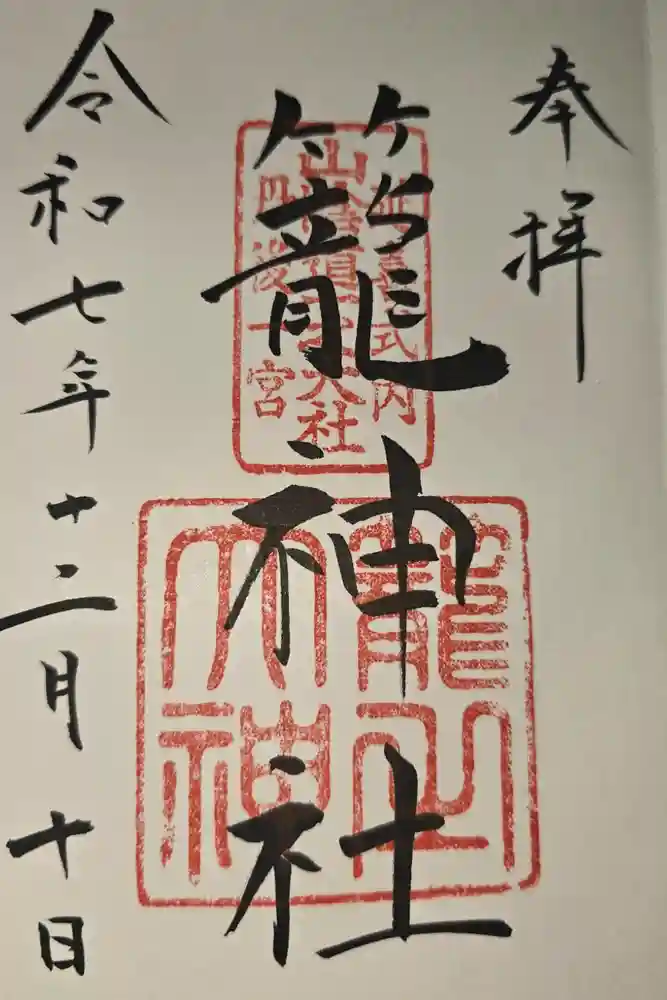 奉拝
延喜式内
山陰道一之大社
丹後一宮
籠神社
籠之
大神
令和七年十二月十日